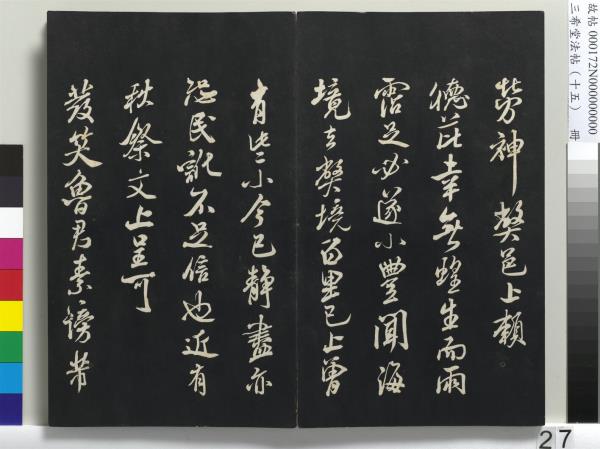 故帖 000172N000000000
三希堂法帖（十五） 冊
勞神弊邑上賴
德芘幸無蝗生而雨
霑足必遂小豐聞海
境去弊境百里已上曾
有些小今已靜盡亦
恐民訛不足信也近有
秋祭文上呈可
發笑魯君素謗芾
27